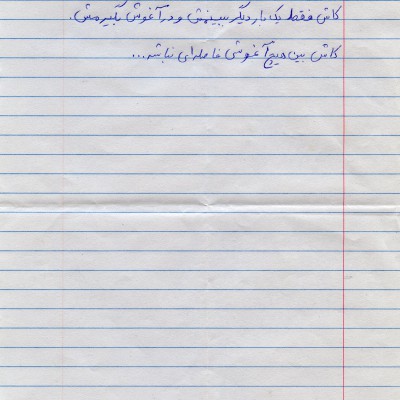 کاش فقط یک بار دیگر ببینمش و در آغوش بگیرمش.
کاش بین هیچ آغوشی فاصله‌ای نباشد...